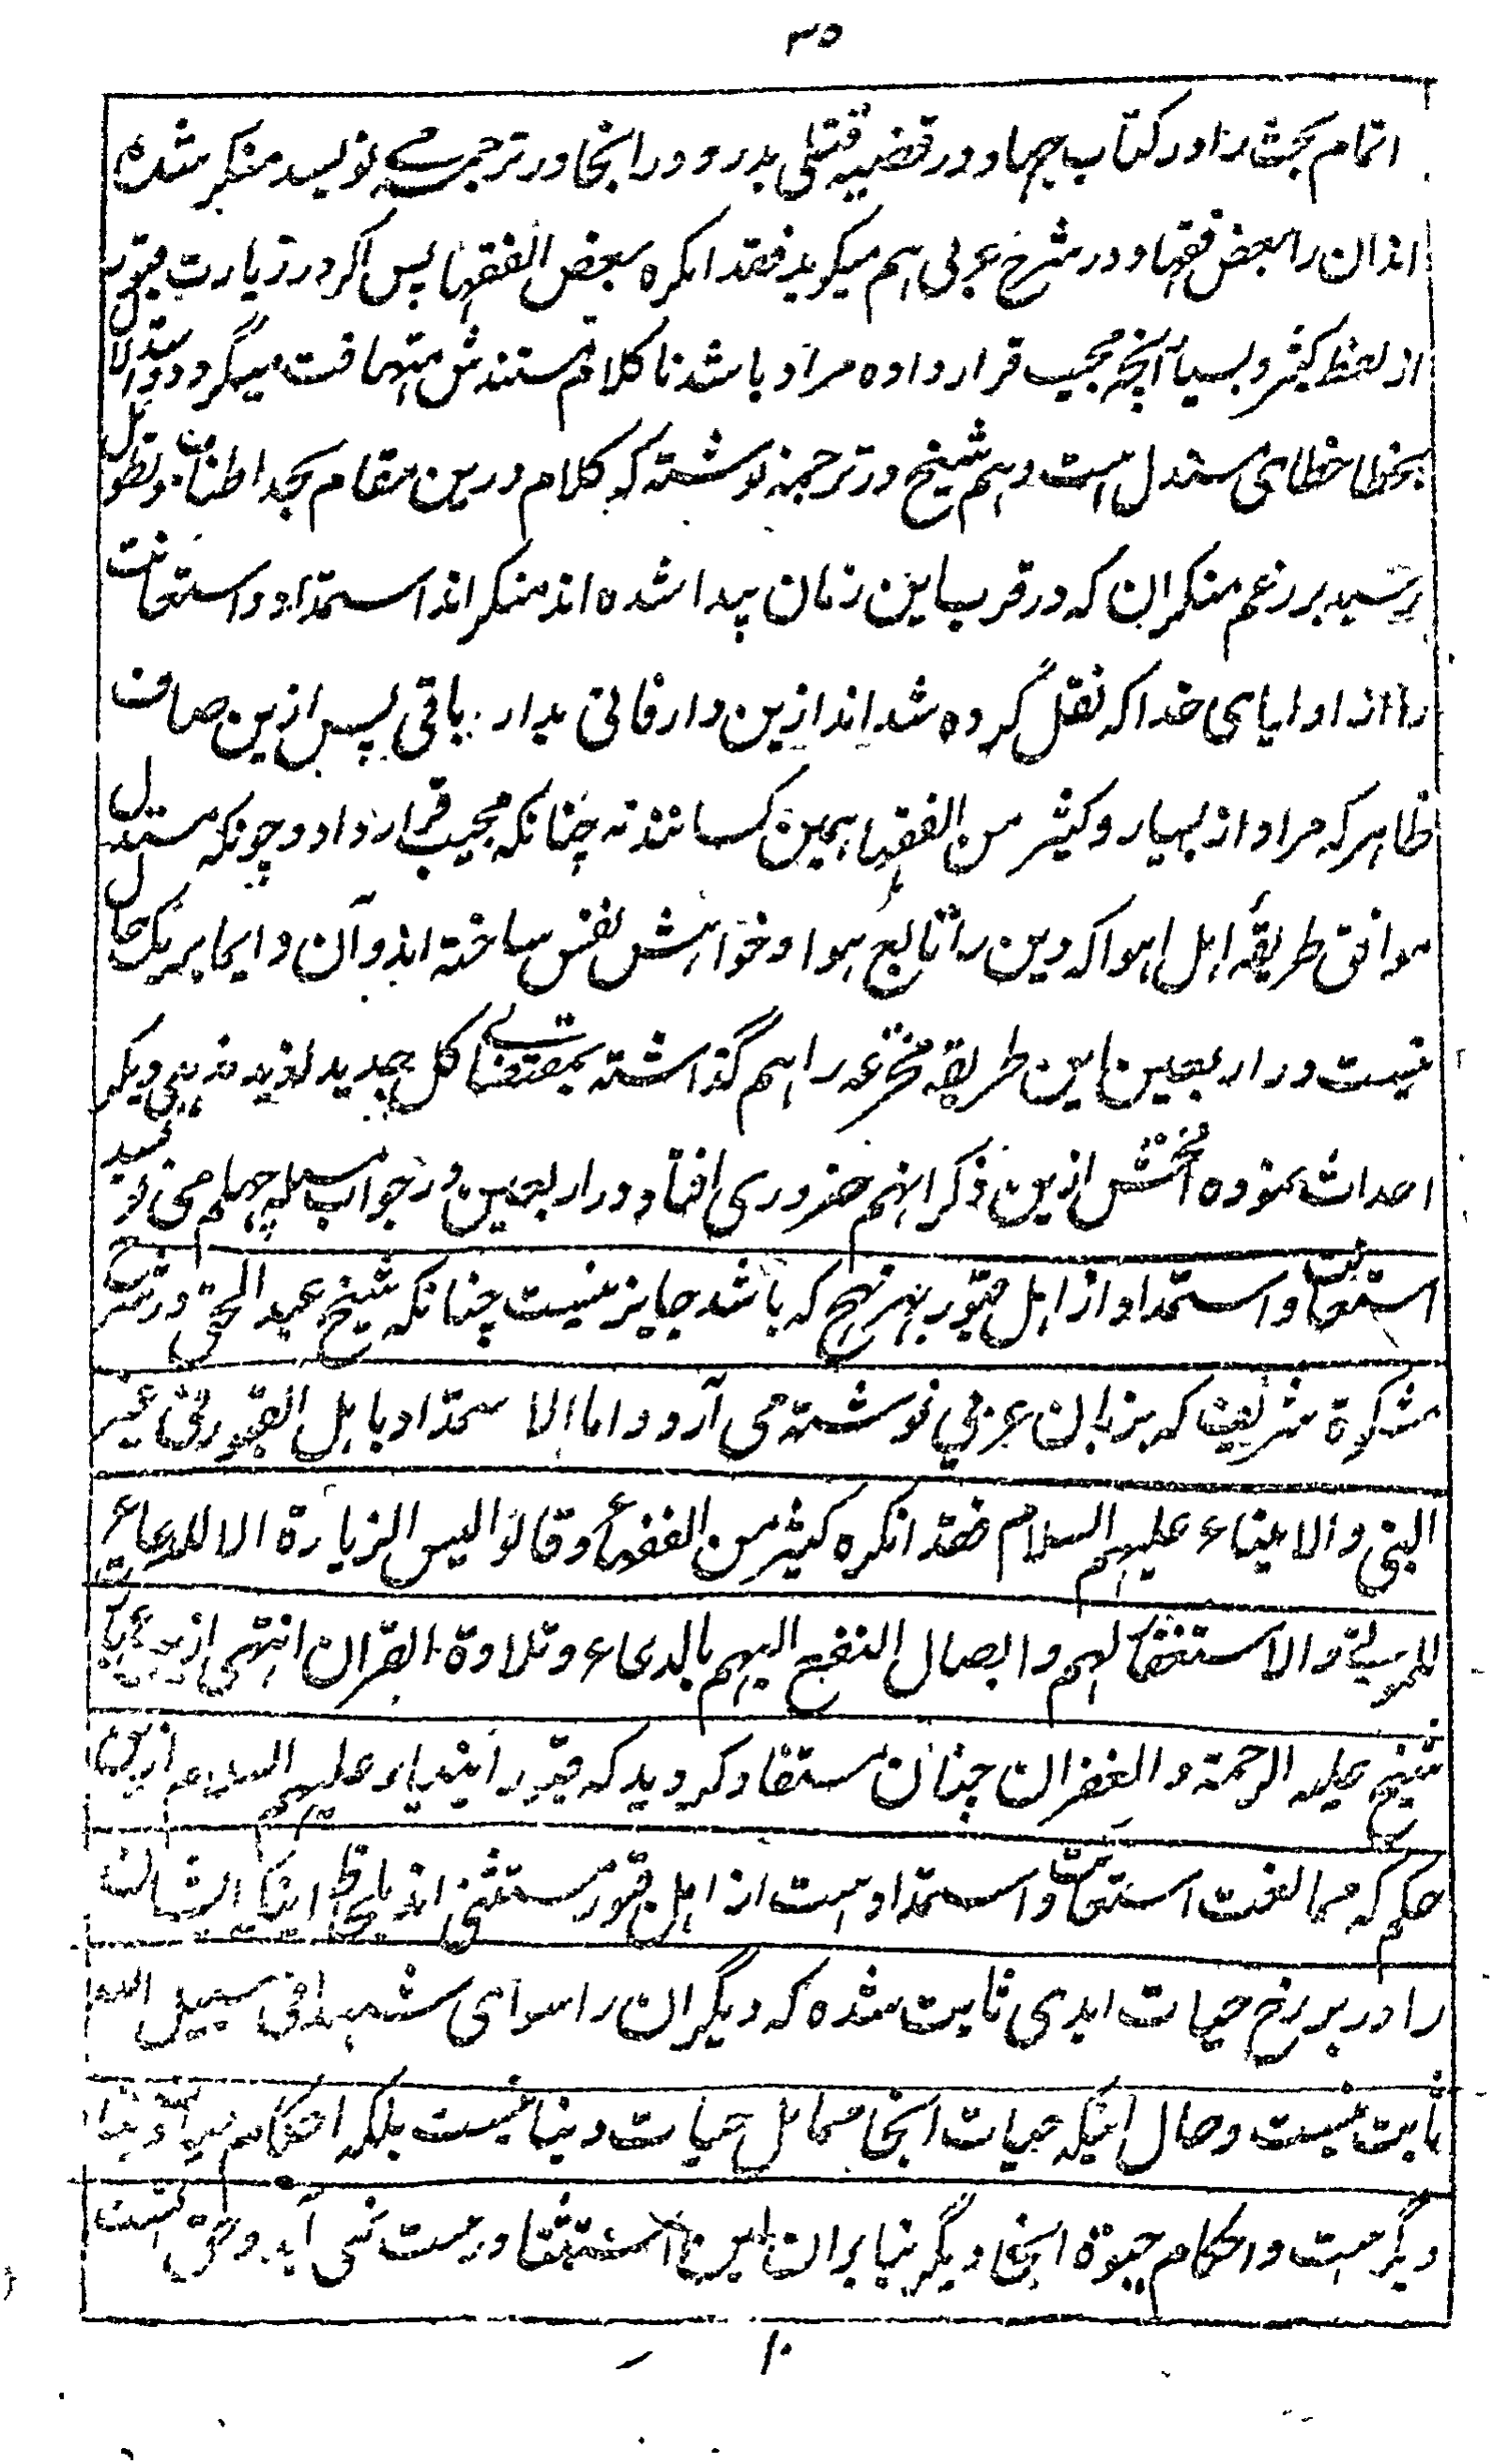 ۳۵
اتمام بحث را در کتاب جهاد در قضیه قتلی بدر و در انجا در ترجمه می نویسد منکر شده
اند ان را بعض فقها و در شرح عربی هم میگوید فقد انکره بعض الفقها پس اگر در زیارت قبور
از لفظ کثیر و بسیار آنچه مجیب قرار داده مراد باشد نا کلام مستندش متهافت میگردد و الا
بخطا خطای مستدل است و هم شیخ در ترجمه نوشته که کلام درین مقام بحد اطناب و تطویل
رسید بر رغم منکران که در قرب این زمان پیدا شده اند منکر اند استمداد و استعانت
را از اولیای خدا که نقل کرده شده اند ازین دار فانی بدار باقی پس ازین صاف
ظاهر که مراد از بسیار و کثیر من الفقها همین کسانند نه چنانکه مجیب قرار داد و چونکه مستدل
موافق طریقه اهل اهوا که دین را تابع هوا و خواهش نفس ساخته اند و آن و ایجا بر یک حال
نیست در اربعین این طریقه مخترعه را هم گذاشته بمقتضای کل جدید لذیذ مذهبی دیگر
احداث نموده لختش ازین ذکر انهم ضروری افتاد در اربعین در جواب مسله چهلم می نویسد
استعانت و استمداد از اهل قبور بهر نهج که باشد جایز نیست چنانکه شیخ عبد الحق در شرح
مشکوة شریف که بزبان عربی نوشته می آرد و اما الاستمداد باهل القبور فی غیر
النبی و الانبیاء علیهم السلام فقد انکره کثیر من الفقهاء و قالوا لیس الزیارة الا للدعاء
للموتی و الاستغفار لهم و ایصال النفع الیهم بالدعاء و تلاوة القران انتهی ازین عبارت
شیخ علیه الرحمة و الغفران چنان مستفاد کردید که قبور انبیاء علیهم السلام ازین
حکم که ممالغت استعانت و استمداد است از اهل قبور مستثنی اند بلحاظ اینکه ایشان
را در برزخ حیات ابدی ثابت شده که دیگران را سوای شهدا فی سبیل الله
ثابت نیست و حال اینکه حیات انجا مماثل حیات دنیا نیست بلکه احکام حیات دنیا
دیگر ست و احکام حیوة انجا دیگر بنا بران این استثنا درست نمی آید و حق انست
۱۰